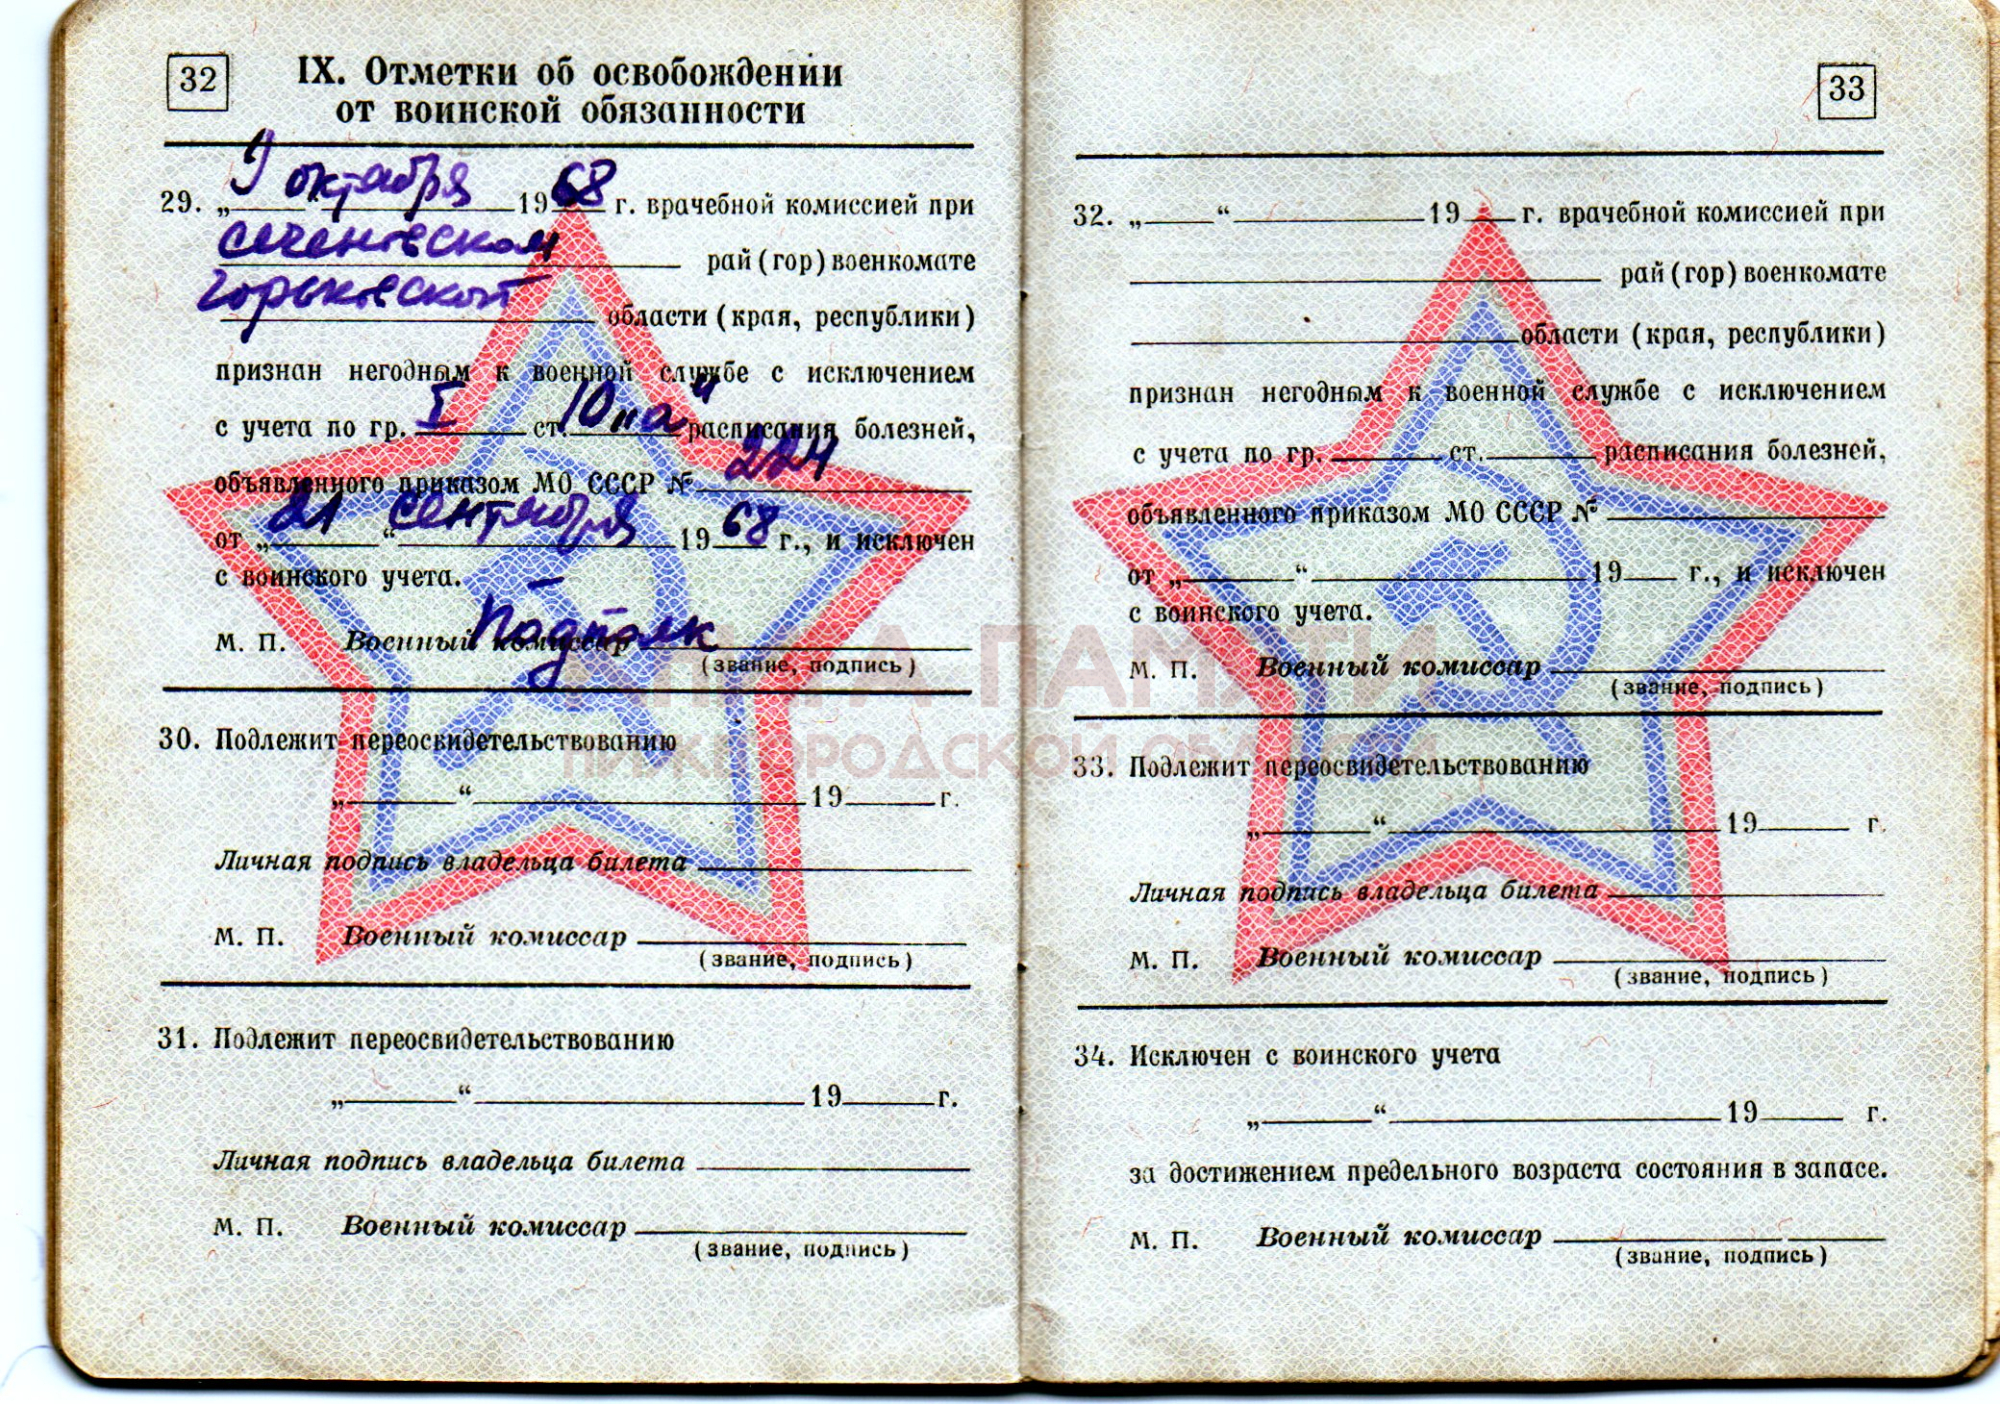 32
IX. Отметки об освобождении
от воинской обязанности
29. „9“ октября 1968 г. врачебной комиссией при
Сеченовском рай (гор) военкомате
Горьковской области (края, республики)
признан негодным к военной службе с исключением
с учета по гр. I ст. 10„а“ расписания болезней,
объявленного приказом МО СССР № 224
от „21“ сентября 1968 г., и исключен
с воинского учета.
М. П. Военный комиссар Подполк
(звание, подпись)
30. Подлежит переосвидетельствованию
„ “ 19 г.
Личная подпись владельца билета
М. П. Военный комиссар
(звание, подпись)
31. Подлежит переосвидетельствованию
„ “ 19 г.
Личная подпись владельца билета
М. П. Военный комиссар
(звание, подпись)
33
32. „ “ 19 г. врачебной комиссией при
рай (гор) военкомате
области (края, республики)
признан негодным к военной службе с исключением
с учета по гр. ст. расписания болезней,
объявленного приказом МО СССР №
от „ “ 19 г., и исключен
с воинского учета.
М. П. Военный комиссар
(звание, подпись)
33. Подлежит переосвидетельствованию
„ “ 19 г.
Личная подпись владельца билета
М. П. Военный комиссар
(звание, подпись)
34. Исключен с воинского учета
„ “ 19 г.
за достижением предельного возраста состояния в запасе.
М. П. Военный комиссар
(звание, подпись)
КНИГА ПАМЯТИ
НИЖЕГОРОДСКОЙ ОБЛАСТИ